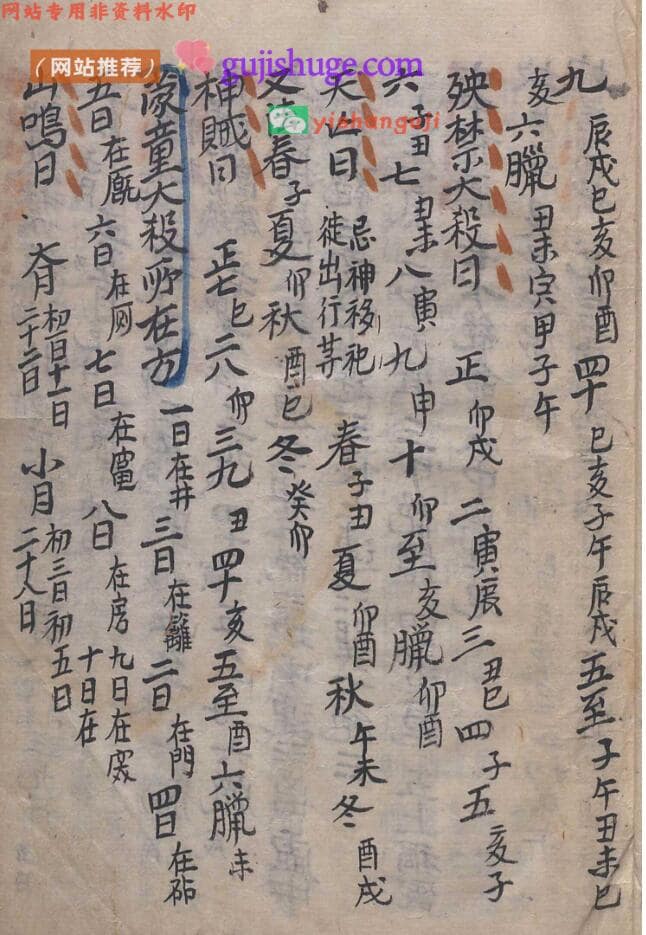 网站专用非资料水印
（网站推荐）
gujishuge.com
yishanguji
九 辰戌巳亥卯酉 四十 巳亥子午辰戌 五至 子午丑未巳
亥 六臘 丑未寅甲子午
殃禁大殺日 正 卯戌 二 寅辰 三 丑巳 四 子 五 亥子
六 子丑 七 丑未 八 寅 九 申 十 卯 至 亥 臘 卯酉
日 忌神移祀徒出行某 春 子丑 夏 卯酉 秋 午未 冬 酉戌
春 子 夏 卯 秋 酉巳 冬 癸卯
神賊日 正七 巳 二八 卯 三九 丑 四十 亥 五至 酉 六臘 未
蒙童大殺所在方 一日 在井 三日 在籬 二日 在門 四日 在砧
五日 在廐 六日 在厠 七日 在竃 八日 在房 九日 在 十日 在
鳴日 大月 初一日十一日二十二日 小月 初三日初五日二十八日